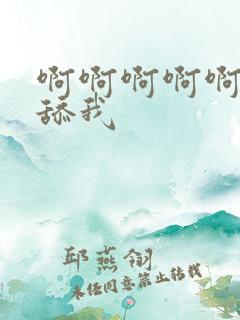 啊啊啊啊啊
舔我
邱燕翎
未经同意禁止转载